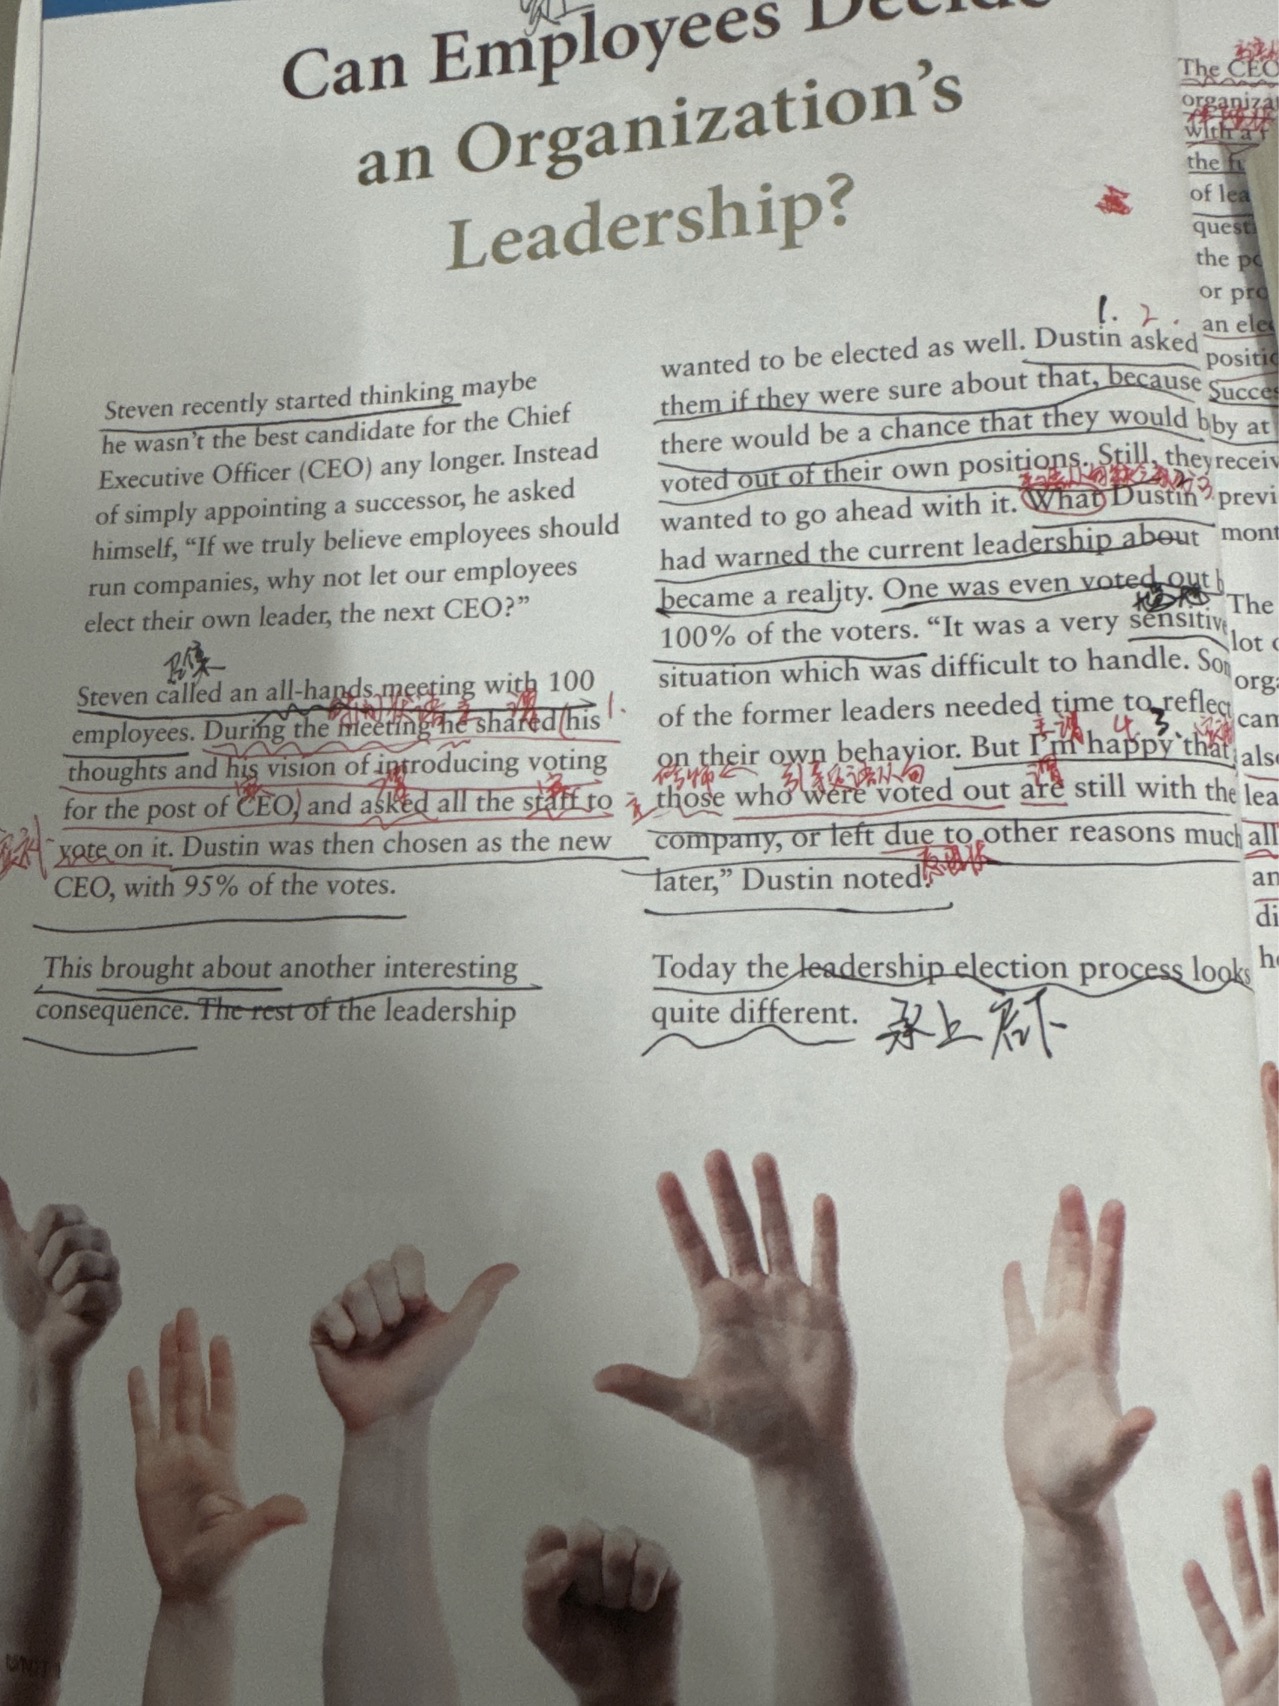 Can Employees Decide
an Organization's
Leadership?
Steven recently started thinking maybe
he wasn't the best candidate for the Chief
Executive Officer (CEO) any longer. Instead
of simply appointing a successor, he asked
himself, “If we truly believe employees should
run companies, why not let our employees
elect their own leader, the next CEO?”
Steven called an all-hands meeting with 100
employees. During the meeting he shared his
thoughts and his vision of introducing voting
for the post of CEO, and asked all the staff to
vote on it. Dustin was then chosen as the new
CEO, with 95% of the votes.
This brought about another interesting
consequence. The rest of the leadership
1. 2.
wanted to be elected as well. Dustin asked
them if they were sure about that, because
there would be a chance that they would b
voted out of their own positions. Still, they
wanted to go ahead with it. What Dustin
had warned the current leadership about
became a reality. One was even voted out b
100% of the voters. “It was a very sensitiv
situation which was difficult to handle. Som
of the former leaders needed time to reflect
主谓 4 3.
on their own behavior. But I'm happy that
those who were voted out are still with the
company, or left due to other reasons much
later,” Dustin noted.
Today the leadership election process looks
quite different.
承上启下
The CEO
organiza
with a f
the fu
of lea
questi
the po
or pro
an elec
positio
Succes
by at
receiv
previ
mont
The
lot o
orga
can
also
lea
all
an
di
he